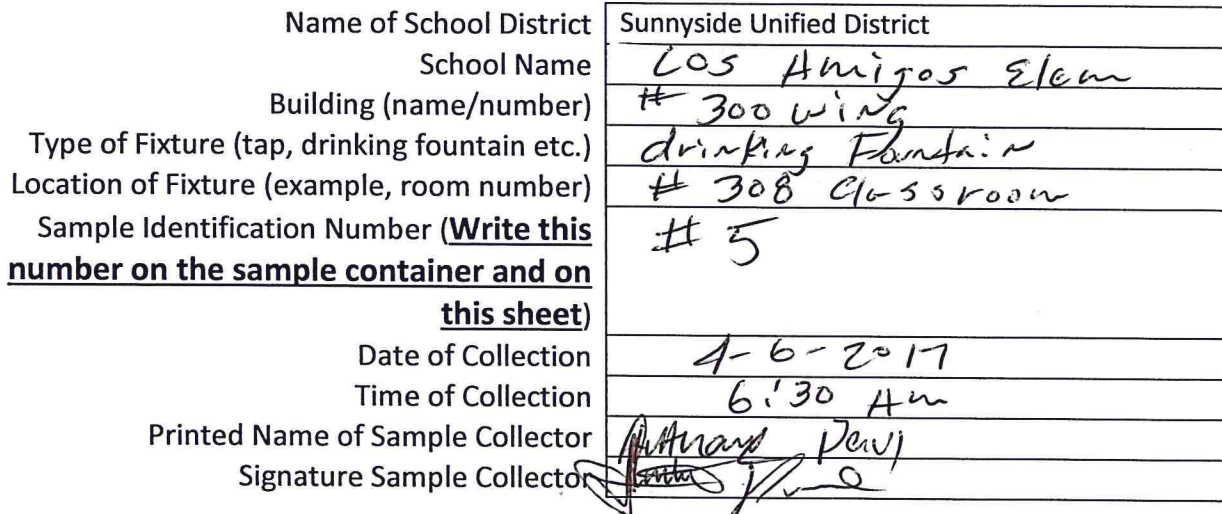 Name of School District Sunnyside Unified District
School Name Los Amigos Elem
Building (name/number) # 300 wing
Type of Fixture (tap, drinking fountain etc.) drinking Fountain
Location of Fixture (example, room number) # 308 Classroom
Sample Identification Number (Write this # 5
number on the sample container and on
this sheet)
Date of Collection 4-6-2017
Time of Collection 6:30 Am
Printed Name of Sample Collector
Signature Sample Collector